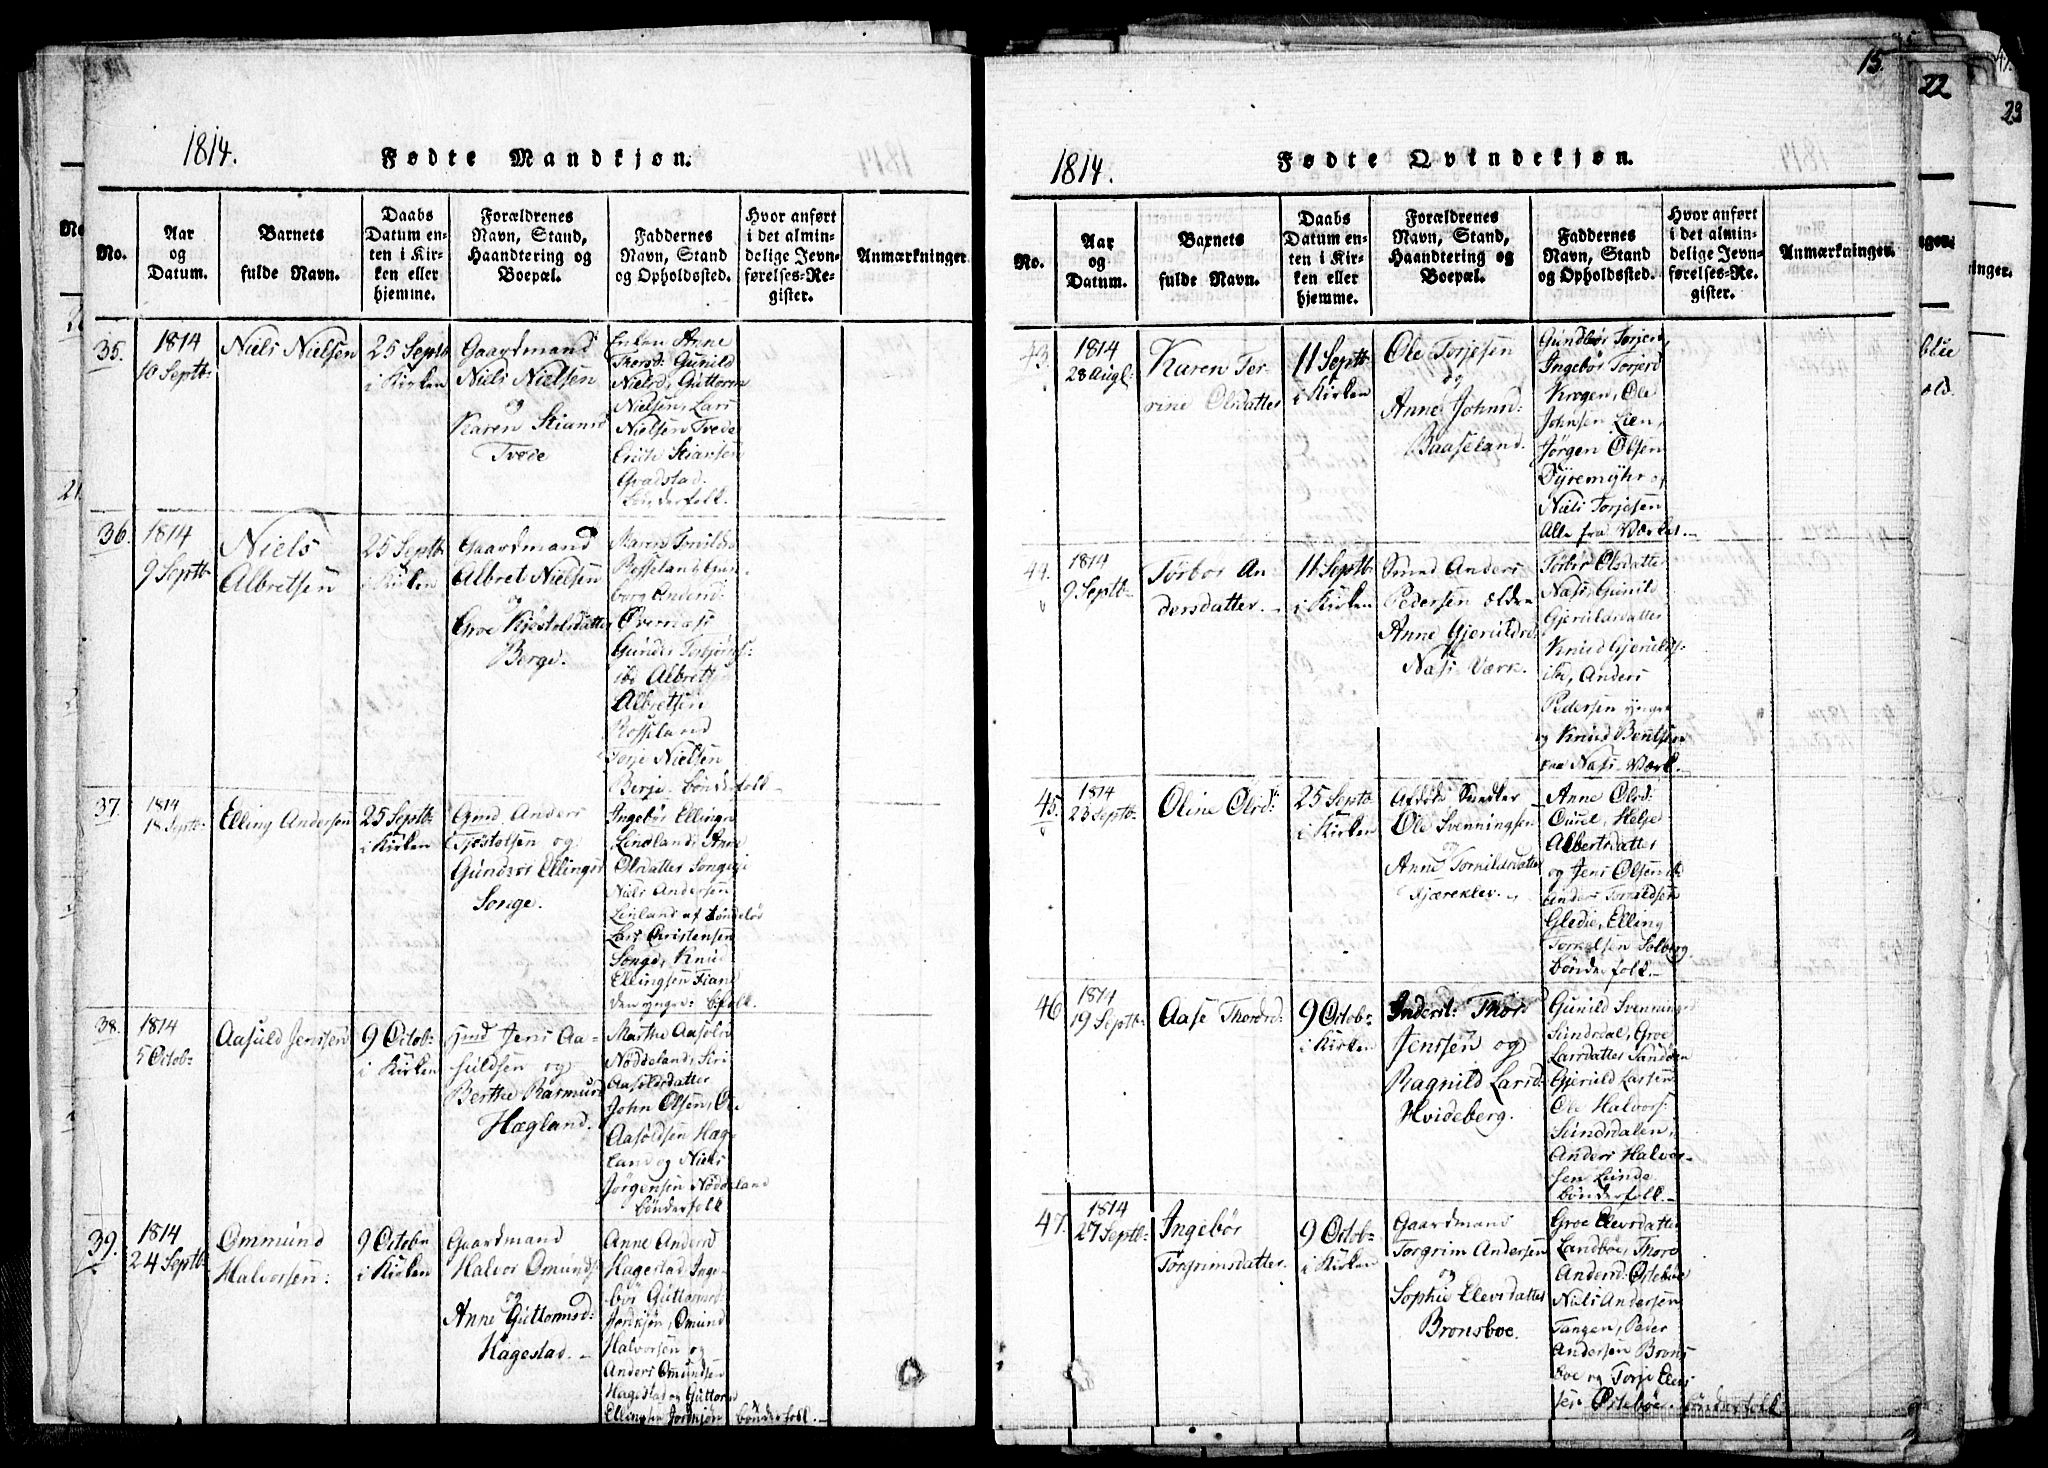 1814.
Fødte Mandkjøn.
No.
Aar
og
Datum.
Barnets
fulde Navn.
Daabs
Datum en-
ten i Kir-
ken eller
hjemme.
Forældrenes
Navn, Stand,
Haandtering og
Boepæl.
Faddernes
Navn, Stand
og Opholdssted.
Hvor anført
i det almin-
delige Jevn-
førelses-Re-
gister.
Anmærkninger
35.
1814
10 Septb:
Niels Nielsen
25 Septb
i Kirken
Gaardmand
Niels Nielsen
og
Karen Stiansd
Tvede
Enken Anne
Thersd: Gunild
Nielsd, Guttorm
Nielsen, Lars
Nielsen Tvede
Erich Stiansen
Gradstad.
bønderfolk.
36.
1814
9 Septb
Niels
Albretsen
25 Septb
i Kirken
Gaardmand
Albret Nielsen
og
Groe Kjøstolsdatter
Berge.
Maren Torvilds
Rosseland
borg Andersd:
Overnæs
Gunder
ibd Albret
Albretsen
Rosseland
Torje Nielsen
Berje. bønderfolk
37.
1814
18 Septb:
Elling Andersen
25 Septb:
i Kirken
Gmd Anders
Tjøstolsen og
Gundbor Ellingsd
Songe.
Ingebør Ellingsd
Lindland, Anne
Olsdatter Songe
Niels Andersen
Linland af bøndelød
Lars Christensen
Songe, Knud
Ellingsen Fiane
den yngre: bfolk.
38.
1814
5 Octob:
Aasuld Jenssen
9 Octob:
i Kirken
Gmd Jens Aa-
suldsen og
Berthe Rasmusd
Hægland.
Marthe Aasolsd
Nøddeland, Siri
Aasoldsdatter
John Olsen, Ole
Aasoldsen Hæg-
land og Niels
Jørgensen Nøddeland
bønderfolk
39.
1814
24 Septb:
Ommund
Halvorsen:
9 Octobr
i Kirken
Gaardmand
Halvor Omunds
og
Anne Guttormsd:
Hagestad. -
Anne Andersd
Hagestad Inge-
bør Guttormsd
Jorkjøn, Omund
Halvorsen og
Anders Omundsen
Hagestad og Guttorm
Ellingsen Jorkjøn bønderfolk. -
15.
1814.
Fødte Qvindekjøn.
No.
Aar
og
Datum.
Barnets
fulde Navn.
Daabs
Datum en-
ten i Kir-
ken eller
hjemme.
Forældrenes
Navn, Stand,
Haandtering og
Boepæl.
Faddernes
Navn, Stand
og Opholdssted.
Hvor anført
i det almin-
delige Jevn-
førelses-Re-
gister.
Anmærkninger.
43.
1814
28 Augl:
Karen Tor-
rine Olsdatter
11 Septb
i Kirken
Ole Torjesen
og
Anne Johnsd:
Baaseland.
Gundbor Torjesd,
Ingebør Torjesd
Krogen, Ole
Johnsen Lien,
Jørgen Olsen
Dyremyhr og
Niels Torjesen
Alle fra Værket. -
44.
1814
9 Septb-
Torbor An-
dersdatter. -
11 Septb
i Kirken
Smed Anders
Pedersen ældre
Anne Gjeruldsd:
Næs Værk.
Torbor Olsdatter
Næs, Gunild
Gjeruldsdatter
Knud Gjerulds:
ibd, Anders
Pedersen yngre
og Knud Bentsen
fra Næs Værk. -
45.
1814
23 Septb-
Oline Olsd:
25 Septb
i Kirken
Afdøde Snedker
Ole Svenningsen
og
Anne Torkildsdatter
Kjæreklev. -
Anne Olsd:
Ourel, Helje
Albertsdatter
og Jens Olsen ibd
Anders Torkildsen
Gledie, Elling
Torkelsen Solberg
bønderfolk. -
46
1814
19 Septb-
Aase Thorsd:
9 Octob:
i Kirken
Inderst: Thor
Jenssen og
Ragnild Larsd
Hvideberg.
Gunild Svenningsd
Sundsdal, Groe
Larsdatter Sandøen
Gjeruld Larsen
Ole Halvors:
Sundsdalen,
Anders Halvor-
sen Lunde
bønderfolk. -
47.
1814
27 Septb:
Ingebør
Torgrimsdatter.
9 Octob:
i Kirken
Gaardmand
Torgrim Andersen
og
Sophie Elevsdatter
Bronsboe.
Groe Elevsdatter
Landbøe, Thore
Andersd: Østebøe
Niels Andersen
Tangen, Peder
Andersen Brons
boe og Torje Elevs
sen Østebøe. bønderfolk
22
23